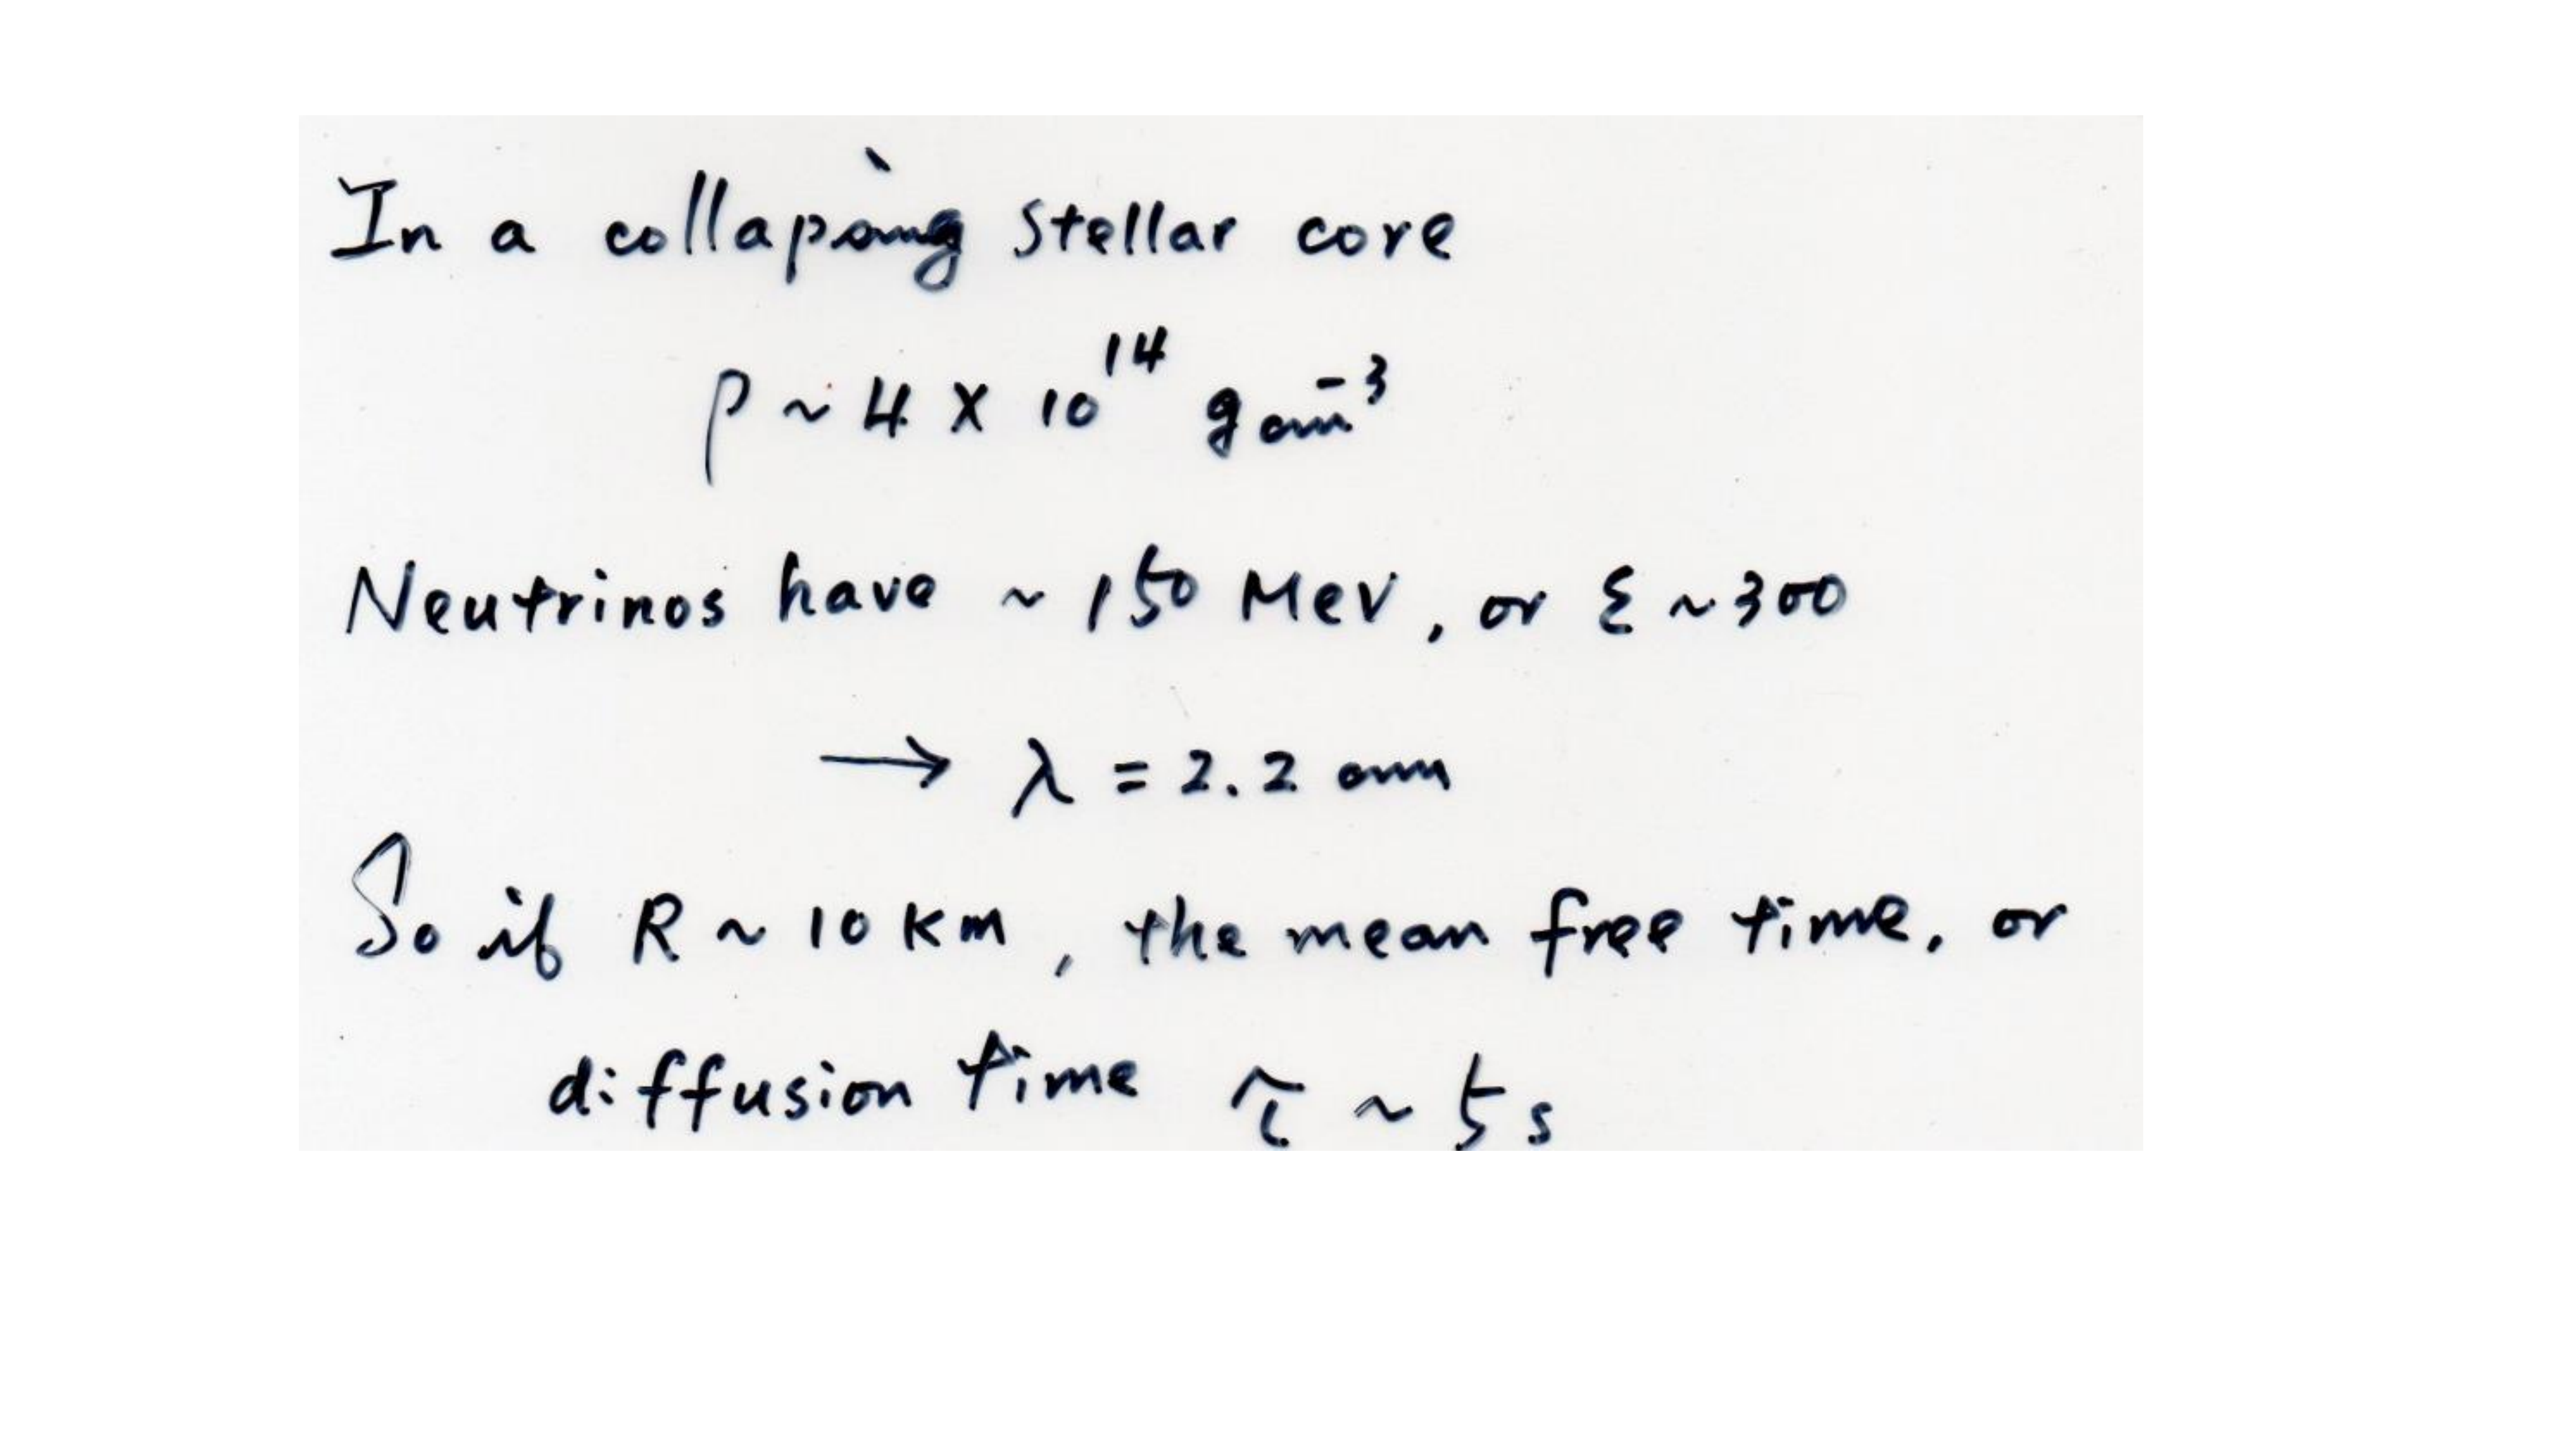 In a collapsing stellar core
ρ ~ 4 × 10¹⁴ g cm⁻³
Neutrinos have ~ 150 MeV, or ε ~ 300
→ λ = 2.2 cm
So if R ~ 10 km, the mean free time, or
diffusion time τ ~ 5 s